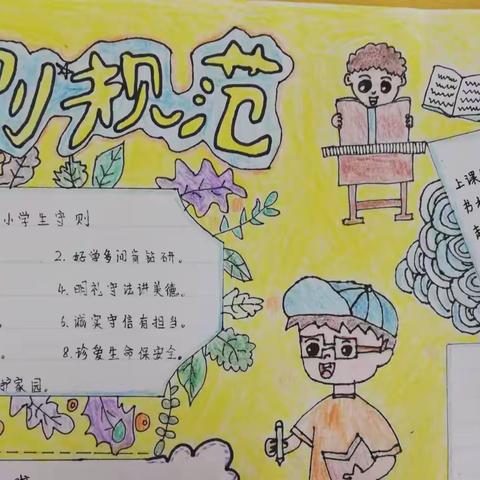 则规范
小学生守则
2.好学多问肯钻研。
4.明礼守法讲美德。
6.诚实守信有担当。
8.珍爱生命保安全。
护家园。
上课